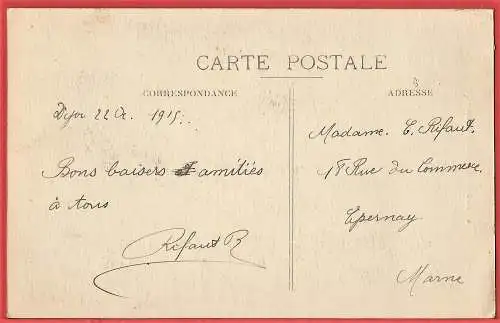 CARTE POSTALE
CORRESPONDANCE
ADRESSE
22 1915
Bons baisers et amitiés
à tous
Rifaut R
Madame. E. Rifaut.
18 Rue du Commerce
Epernay
Marne